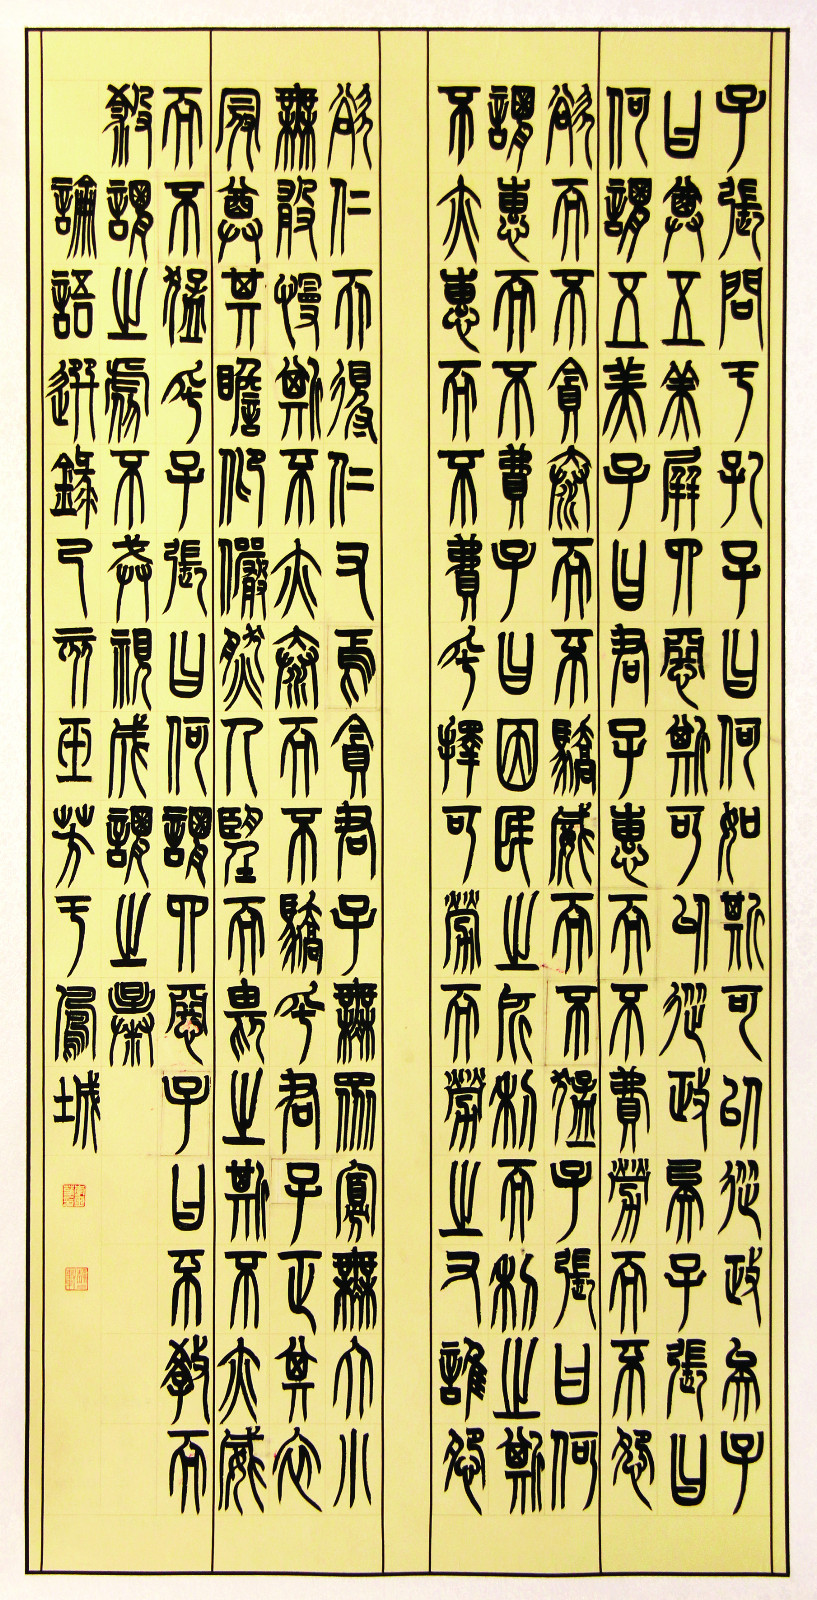 子張問于孔子曰何如斯可以從政矣子
曰尊五美屏四惡斯可以從政矣子張曰
何謂五美子曰君子惠而不費勞而不怨
欲而不貪泰而不驕威而不猛子張曰何
謂惠而不費子曰因民之所利而利之斯
不亦惠而不費乎擇可勞而勞之又誰怨
欲仁而得仁又焉貪君子無眾寡無大小
無敢慢斯不亦泰而不驕乎君子正其衣
冠尊其瞻視儼然人望而畏之斯不亦威
而不猛乎子張曰何謂四惡子曰不教而
殺謂之虐不戒視成謂之暴
論語選錄芳于鳳城